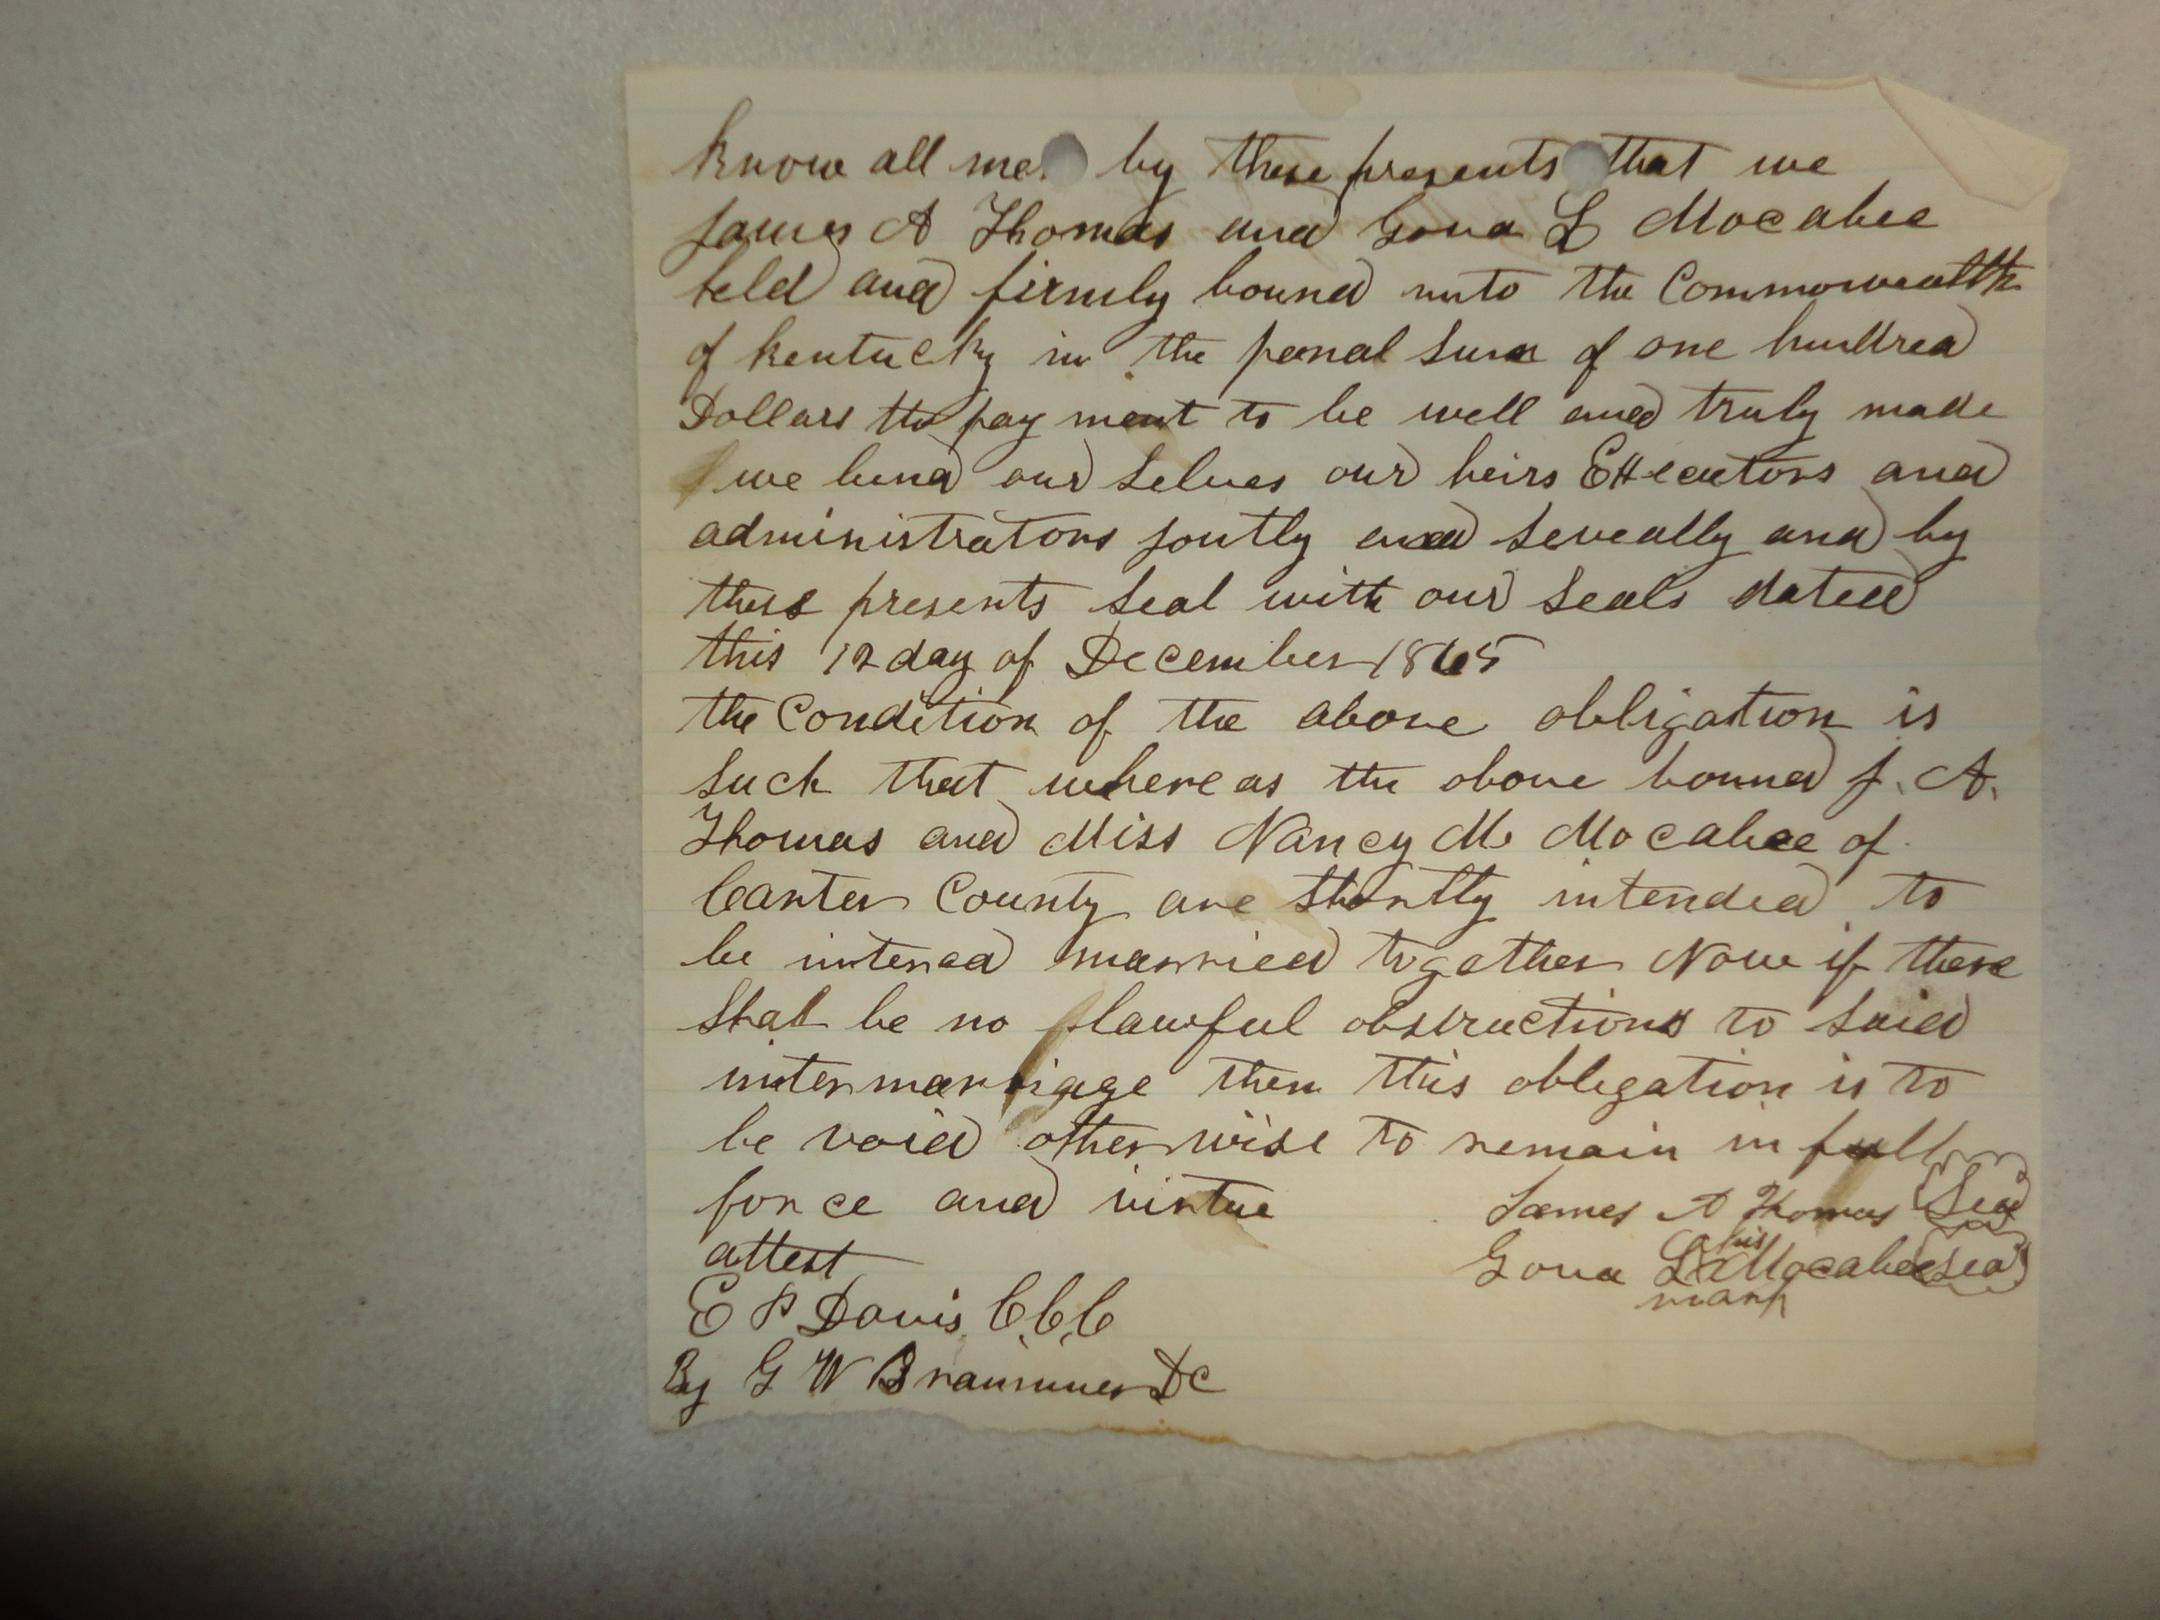 know all me by these presents that we
James A Thomas and Gova L Mocabee
held and firmly bound unto the Commonwealth
of Kentucky in the penal sum of one hundred
Dollars the pay ment to be well and truly made
we bind our selves our heirs Executors and
administrators jontly and seveally and by
these presents seal with our seals dated
this 12 day of December 1865
the Condition of the above obligation is
such that where as the above bound J. A.
Thomas and Miss Nancy M. Mocabee of
Carter County are shortly intended to
be intered married together Now if there
shal be no lawful obstructions to said
inter marriage then this obligation is to
be void other wise to remain in full
force and virtue
James A Thomas Seal
attest
his
Gova L x Mocabee Seal
mark
E P Davis C.C.C
By G W Brammer DC